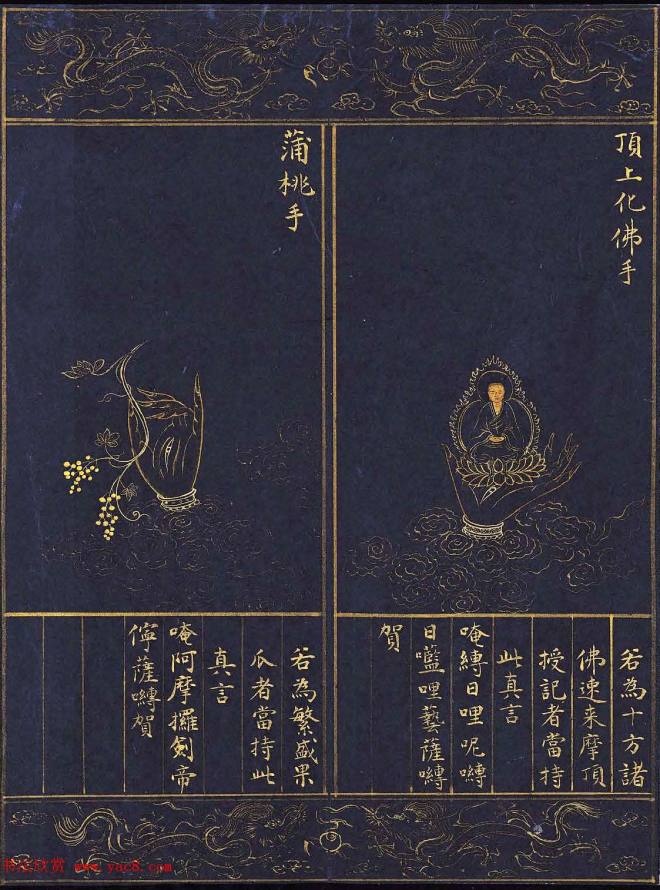 頂上化佛手
若為十方諸
佛速来摩頂
授記者當持
此真言
唵縛日哩呢嚩
日囕哩藝薩嚩
賀
蒲桃手
若為繁盛果
瓜者當持此
真言
唵阿摩攞劍帝
儜薩嚩賀
www.yac8.com